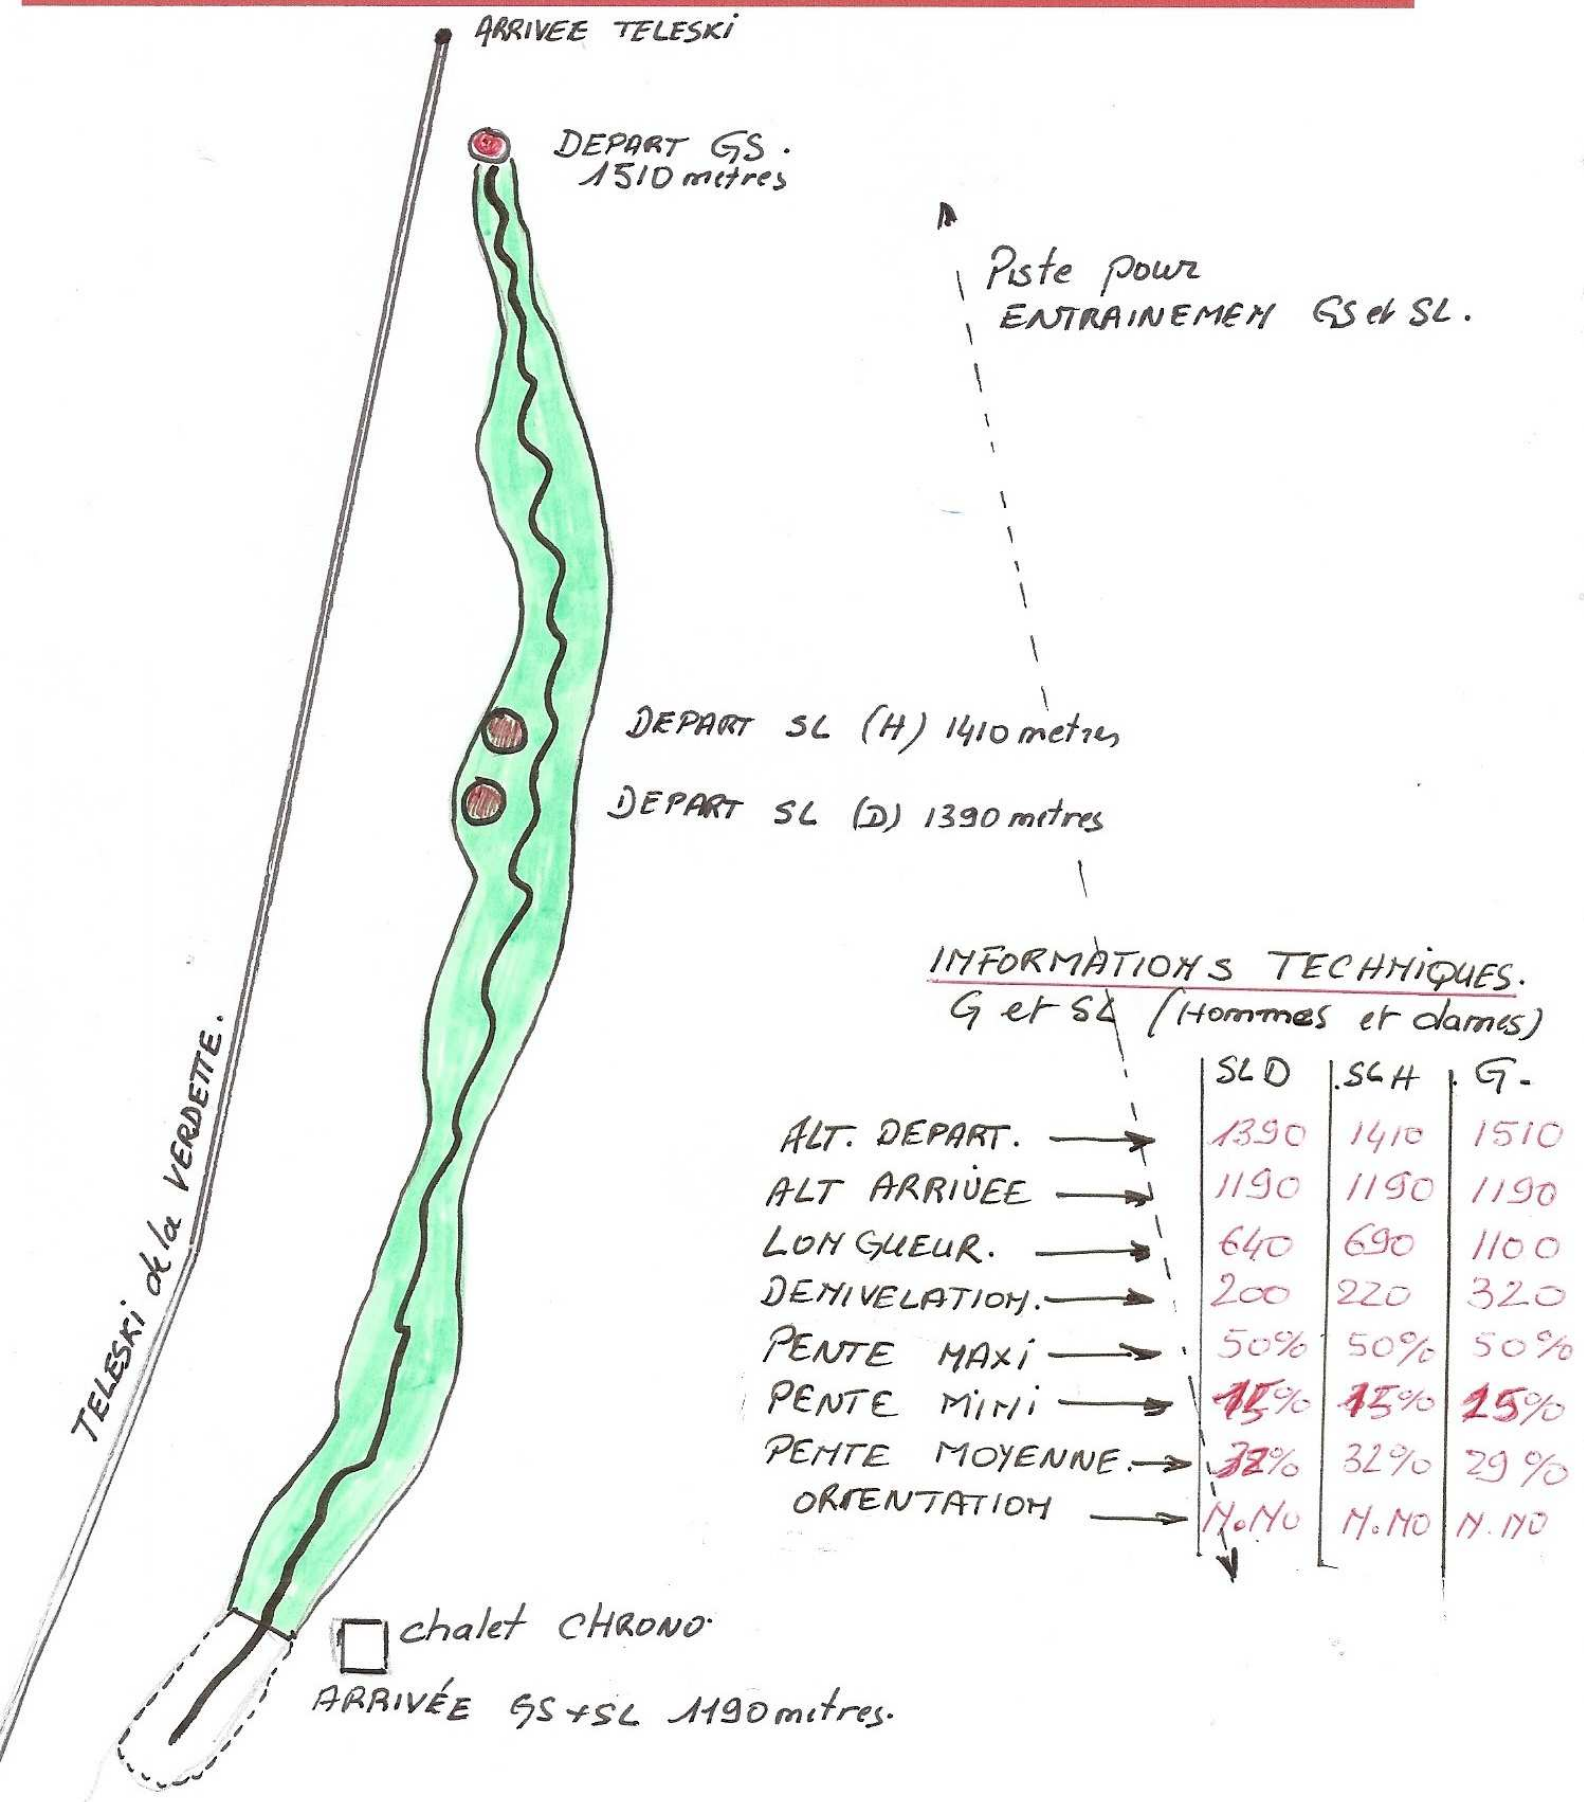 ARRIVEE TELESKI
DEPART GS.
1510 metres
Piste pour
ENTRAINEMEN GS et SL.
DEPART SL (H) 1410 metres
DEPART SL (D) 1390 metres
TELESKI de la VERDETTE.
INFORMATIONS TECHNIQUES.
G et SL (Hommes et dames)
SLD SLH G-
ALT. DEPART. 1390 1410 1510
ALT ARRIVEE 1190 1190 1190
LONGUEUR. 640 690 1100
DENIVELATION. 200 220 320
PENTE MAXI 50% 50% 50%
PENTE MINI 15% 15% 15%
PENTE MOYENNE. 32% 32% 29%
ORIENTATION N.NO N.NO N.NO
chalet CHRONO.
ARRIVÉE GS+SL 1190 metres.